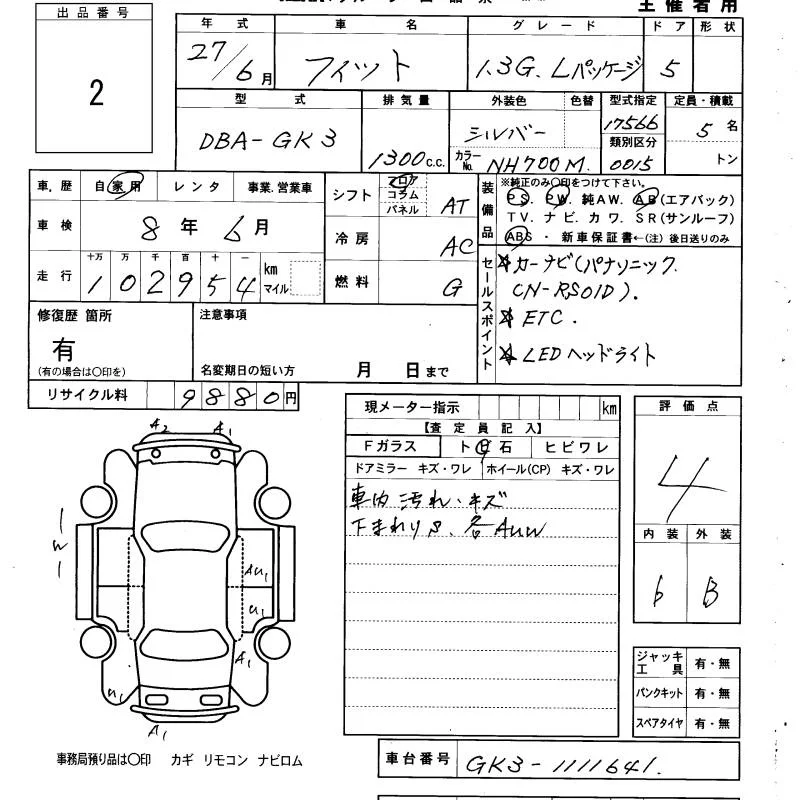 主催者用
出品番号
2
年式 車名 グレード ドア 形状
27/6月 フィット 1.3G. Lパッケージ 5
型式 排気量 外装色 色替 型式指定 定員・積載
DBA-GK3 1300c.c. シルバー 17566 5名
カラーNo. NH700M. 類別区分 0015 トン
車歴 自家用 レンタ 事業.営業車
車検 8年6月
走行 十万 万 千 百 十 一
102954 km マイル
シフト フロア コラム パネル AT
冷房 AC
燃料 G
装備品
※純正のみ〇印をつけて下さい。
PS. PW. 純AW. AB(エアバック)
TV. ナビ. カワ. SR(サンルーフ)
ABS ・ 新車保証書←(注) 後日送りのみ
セールスポイント
カーナビ(パナソニック
CN-RS01D).
ETC.
LEDヘッドライト
修復歴 箇所
有
(有の場合は〇印を)
注意事項
名変期日の短い方 月 日まで
リサイクル料 9880円
現メーター指示 km
【査定員記入】
Fガラス ト飛石 ヒビワレ
ドアミラー キズ・ワレ ホイール(CP) キズ・ワレ
車内 汚れ・キズ
下まわりS. 各AUW
評価点
4
内装 外装
B
A2 A1
W
AU1
U1
A1
U1
A1
ジャッキ工具 有・無
パンクキット 有・無
スペアタイヤ 有・無
事務局預り品は〇印 カギ リモコン ナビロム
車台番号 GK3-1111641.